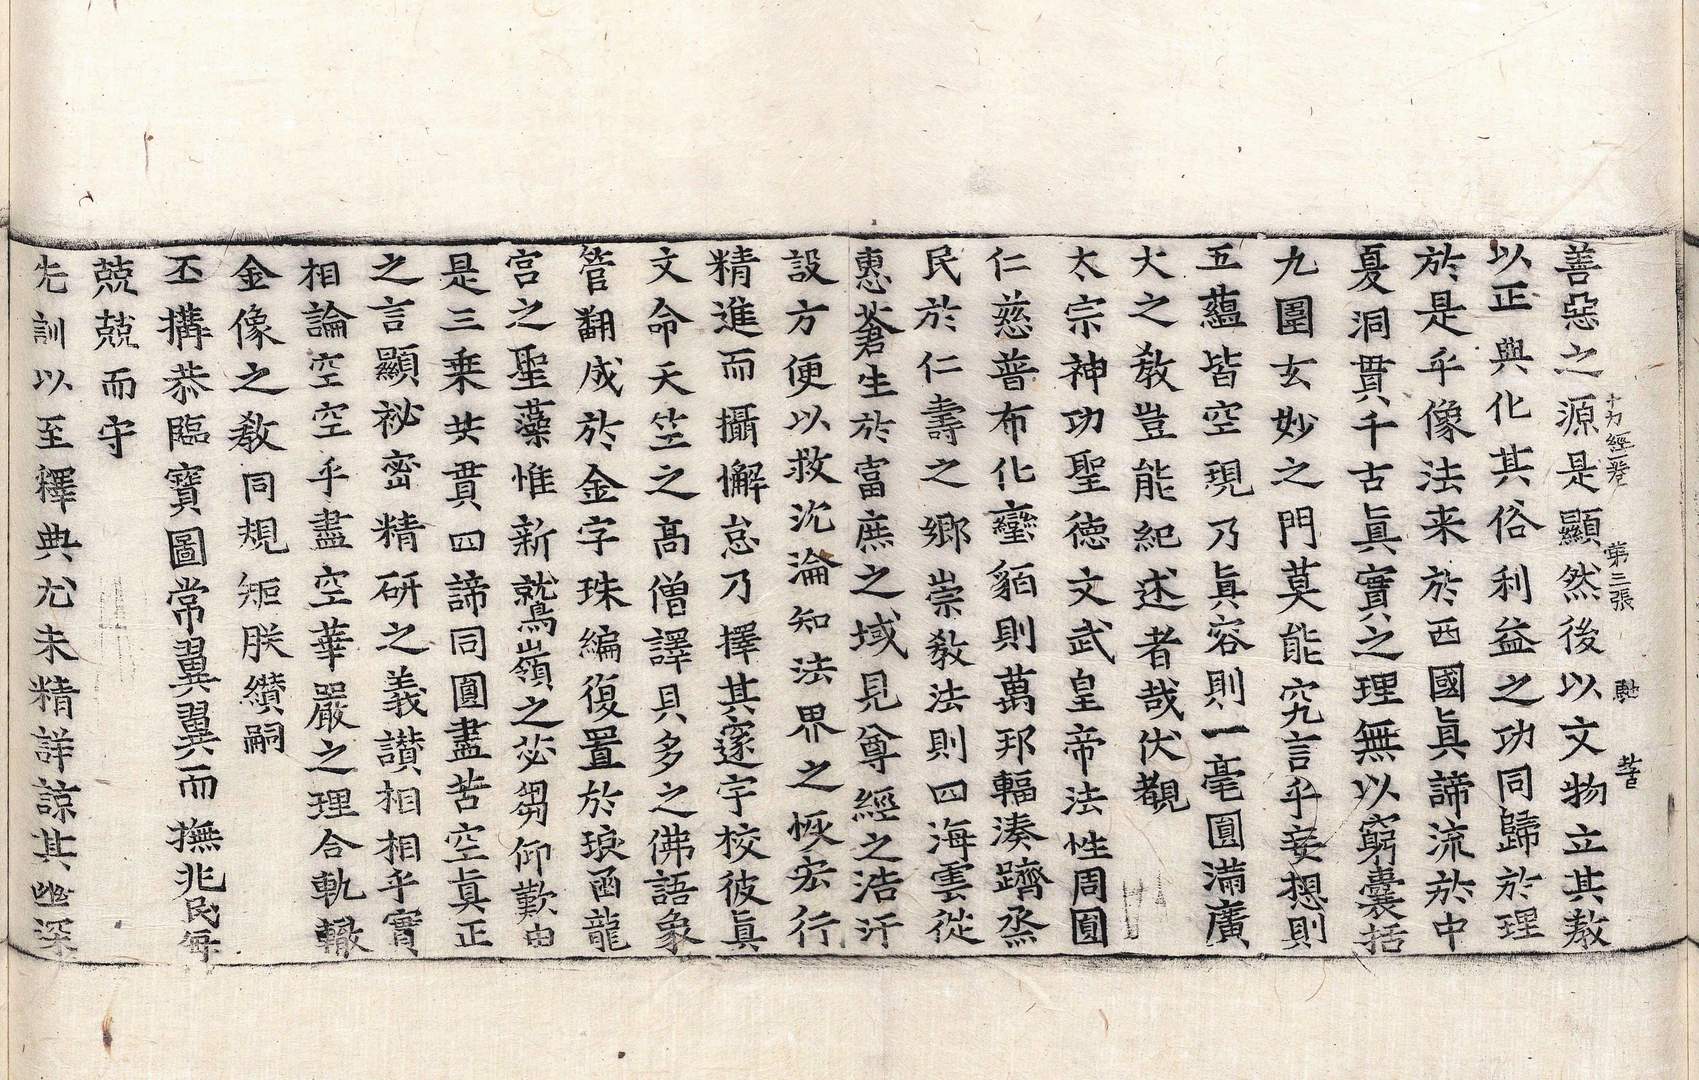 善惡之源是顯然後以文物立其教
十力經一卷　第三張　勣　㗖
以正與化其俗利益之功同歸於理
於是乎像法来於西國真諦流於中
夏洞貫千古眞實之理無以窮囊括
九圍玄妙之門莫能究言乎妄想則
五蘊皆空現乃眞容則一毫圓滿廣
大之教豈能紀述者哉伏覩
太宗神功聖德文武皇帝法性周圓
仁慈普布化蠻貊則萬邦輻湊躋烝
民於仁壽之鄉崇教法則四海雲從
惠蒼生於富庶之域見尊經之浩汗
設方便以救沈淪知法界之恢宏行
精進而攝懈怠乃擇其邃宇校彼眞
文命天竺之高僧譯貝多之佛語象
管翻成於金字珠編復置於琅函龍
宮之聖藻惟新鷲嶺之苾蒭仰歎由
是三乗共貫四諦同圓盡苦空眞正
之言顯祕密精研之義讃相相乎實
相論空空乎盡空華嚴之理合軌轍
金像之教同規矩朕纘嗣
丕搆恭臨寶圖常翼翼而撫兆民每
兢兢而守
先訓以至釋典尤未精詳諒其幽深